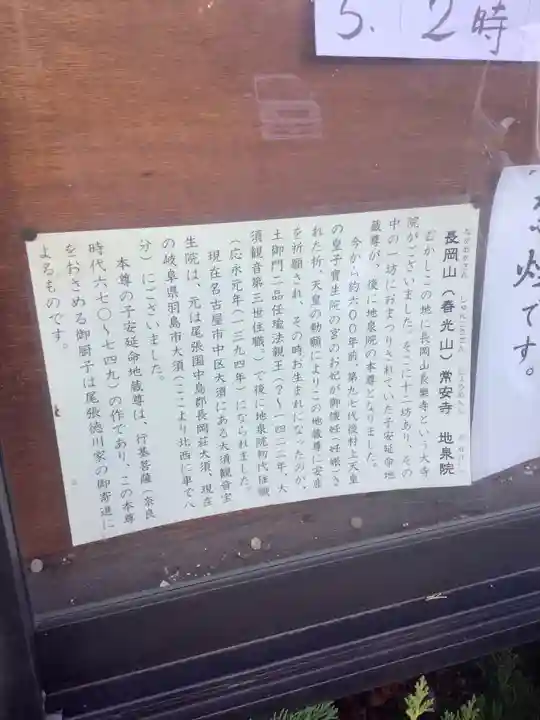 5. 2時
煙です。
長岡山(春光山)常安寺 地泉院
むかしこの地に長岡山長樂寺という大寺
院がございました。そこに十二坊あり、その
中の一坊におまつりされていた子安延命地
蔵尊が、後に地泉院の本尊となりました。
今から約六〇〇年前、第九七代後村上天皇
の皇子寶生院の宮のお妃が御懐妊(妊娠)さ
れた折、天皇の勅願によりこの地蔵尊に安産
を祈願され、その時お生まれになったのが、
土御門二品任瑜法親王(?〜一四二二年、大
須観音第三世住職。)で後に地泉院初代住職
(応永元年(一三九四年)になられました。
現在名古屋市中区大須にある大須観音宝
生院は、元は尾張国中島郡長岡荘大須、現在
の岐阜県羽島市大須(ここより北西に車で八
分)にございました。
本尊の子安延命地蔵尊は、行基菩薩(奈良
時代六七〇〜七四九)の作であり、この本尊
をおさめる御厨子は尾張徳川家の御寄進に
よるものです。